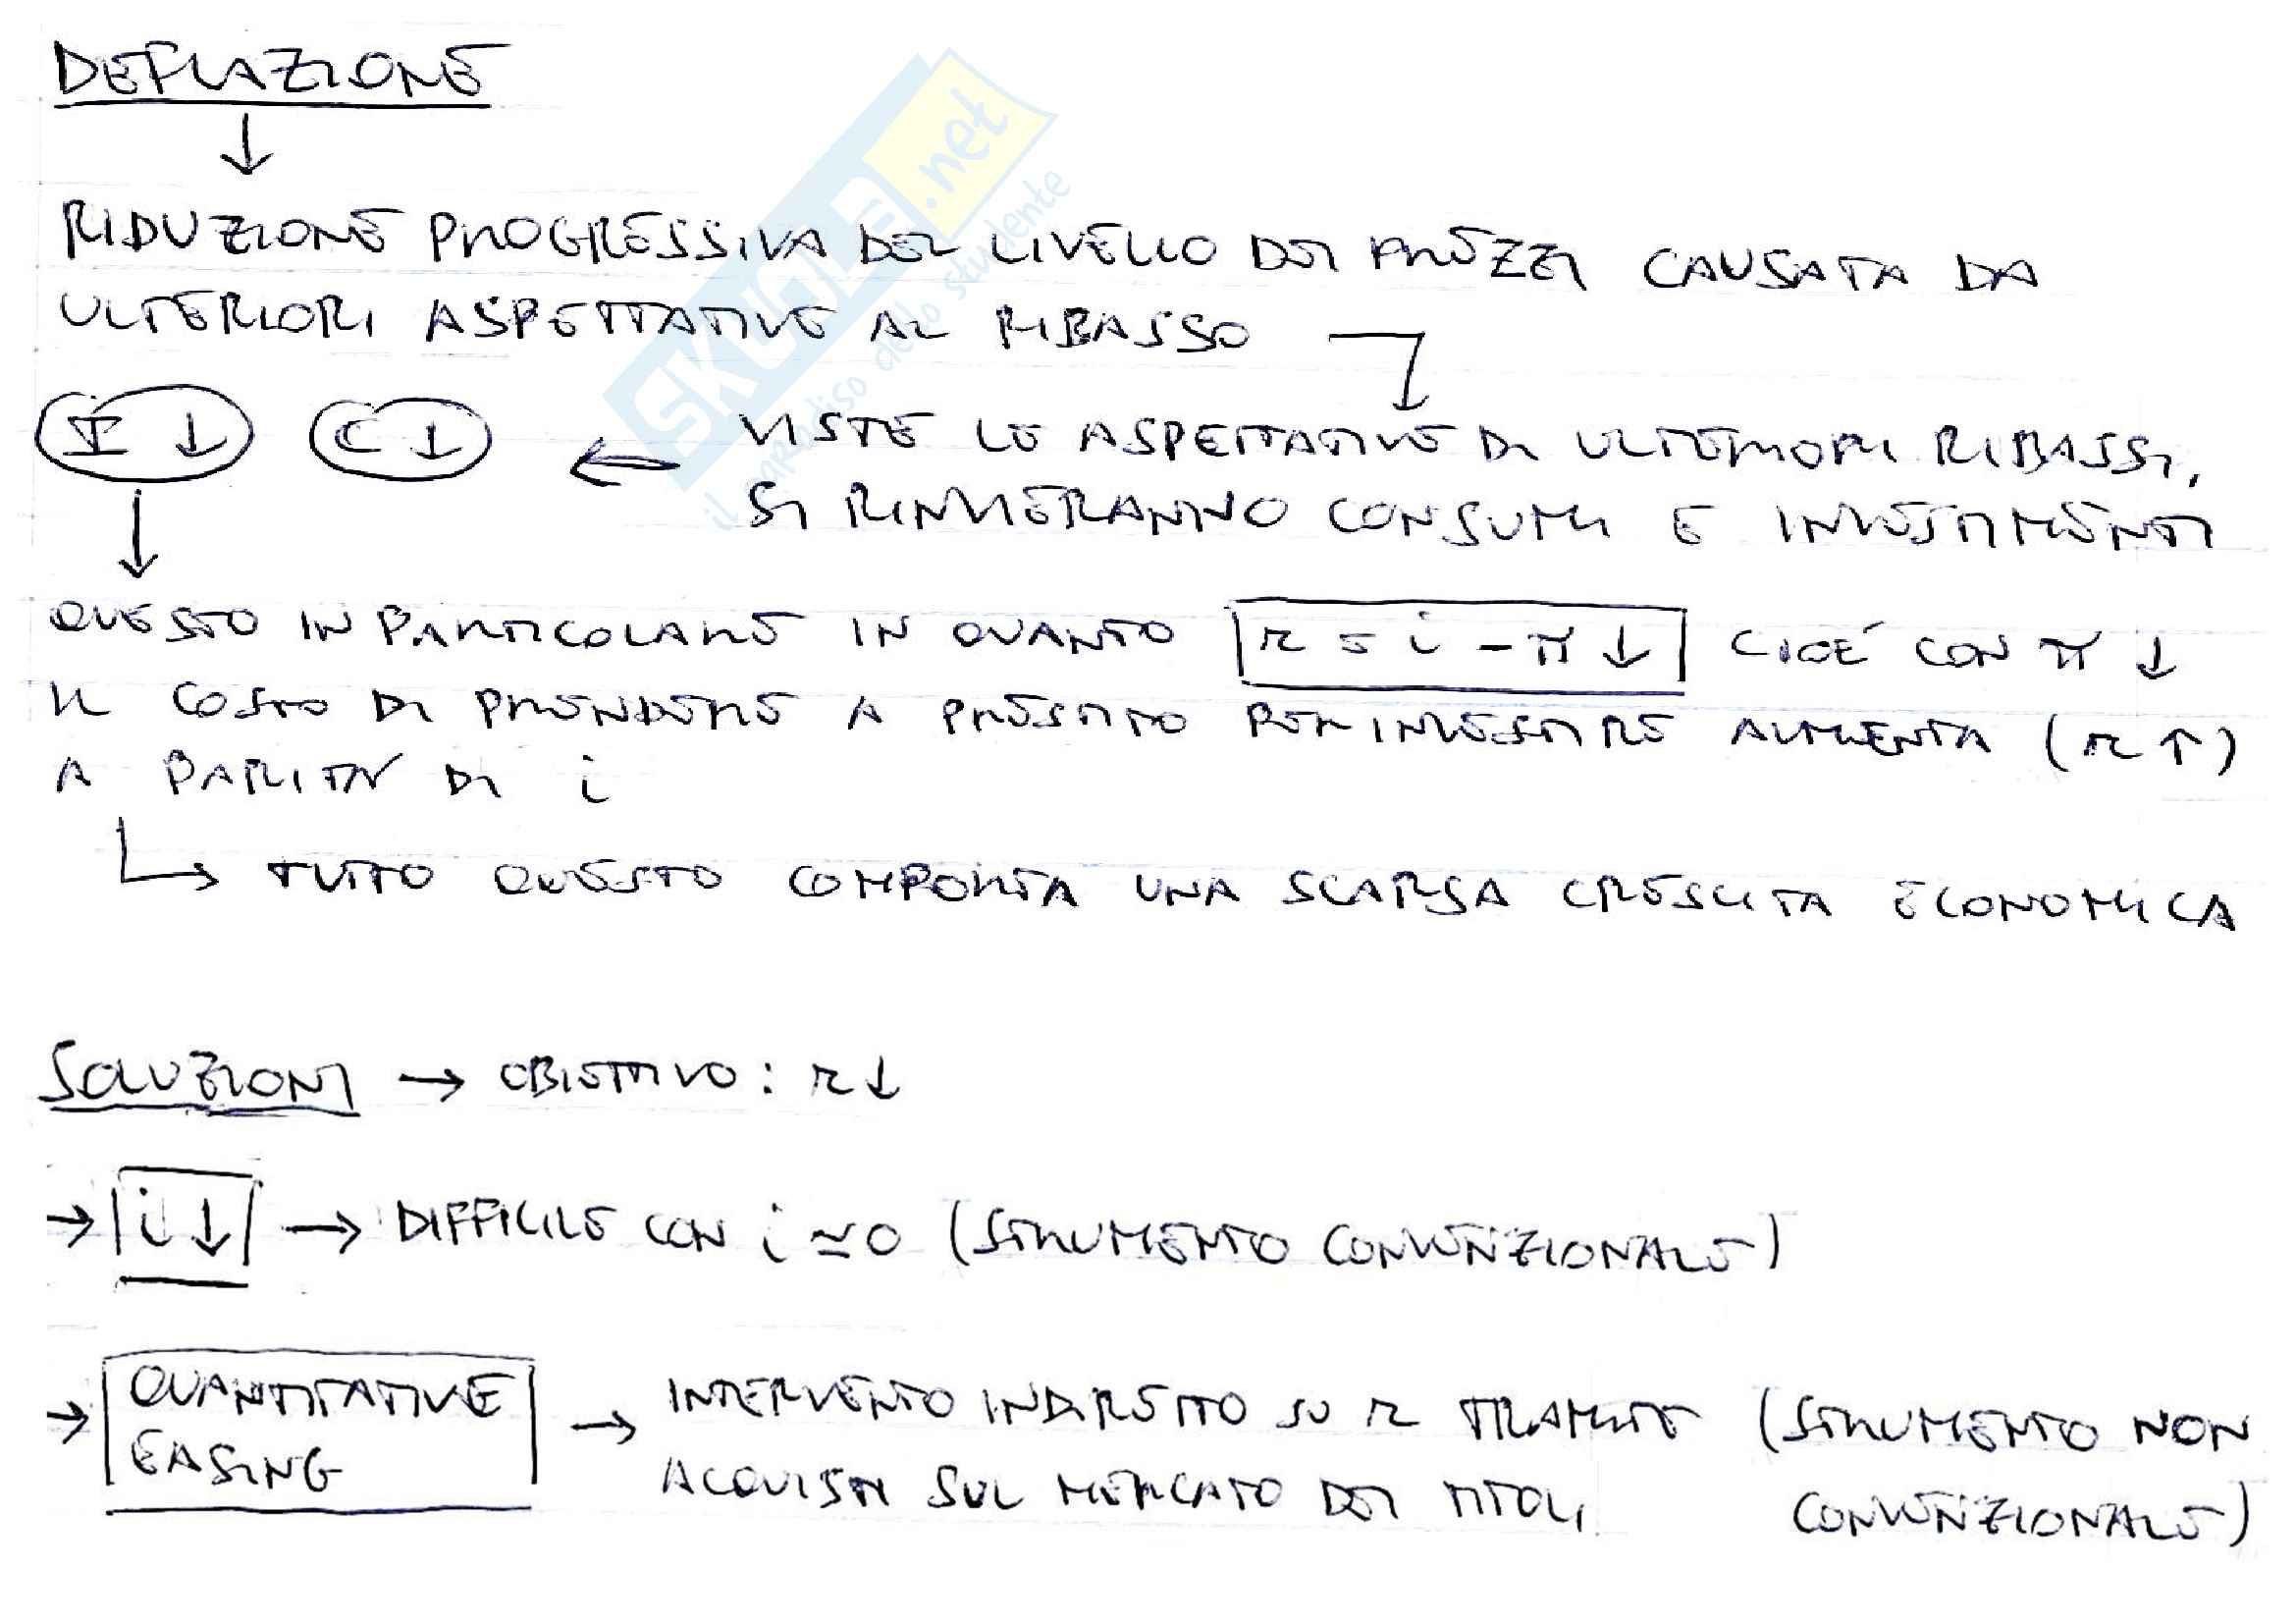 DEFLAZIONE
↓
RIDUZIONE PROGRESSIVA DEL LIVELLO DEI PREZZI CAUSATA DA
ULTERIORI ASPETTATIVE AL RIBASSO
I ↓ C ↓ ← VISTE LE ASPETTATIVE DI ULTERIORI RIBASSI,
SI RINVIERANNO CONSUMI E INVESTIMENTI
↓
QUESTO IN PARTICOLARE IN QUANTO r = i - π ↓ CIOÉ CON π ↓
IL COSTO DI PRENDERE A PRESTITO PER INVESTIRE AUMENTA (r ↑)
A PARITA' DI i
→ TUTTO QUESTO COMPORTA UNA SCARSA CRESCITA ECONOMICA
SOLUZIONI → OBIETTIVO: r ↓
→ i ↓ → DIFFICILE CON i ≃ 0 (STRUMENTO CONVENZIONALE)
→ QUANTITATIVE EASING → INTERVENTO INDIRETTO SU r TRAMITE (STRUMENTO NON
ACQUISTI SUL MERCATO DEI TITOLI CONVENZIONALE)
SKUOLA.net
il paradiso dello studente